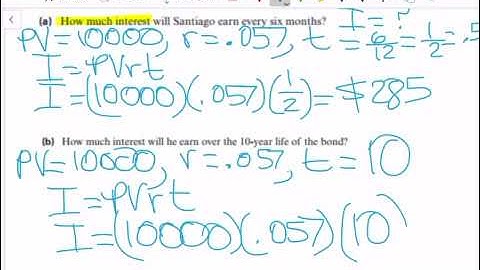 (a) How much interest will Santiago earn every six months? I = ?
PV = 10000, r = .057, t = 6/12 = 1/2 = .5
I = PVrt
I = (10000)(.057)(1/2) = $285
(b) How much interest will he earn over the 10-year life of the bond?
PV = 10000, r = .057, t = 10
I = PVrt
I = (10000)(.057)(10